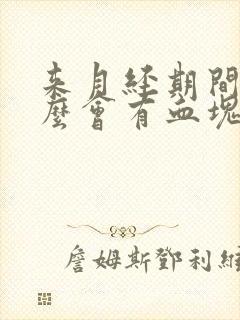 來月經期間
麼會有血塊
詹姆斯鄧利維